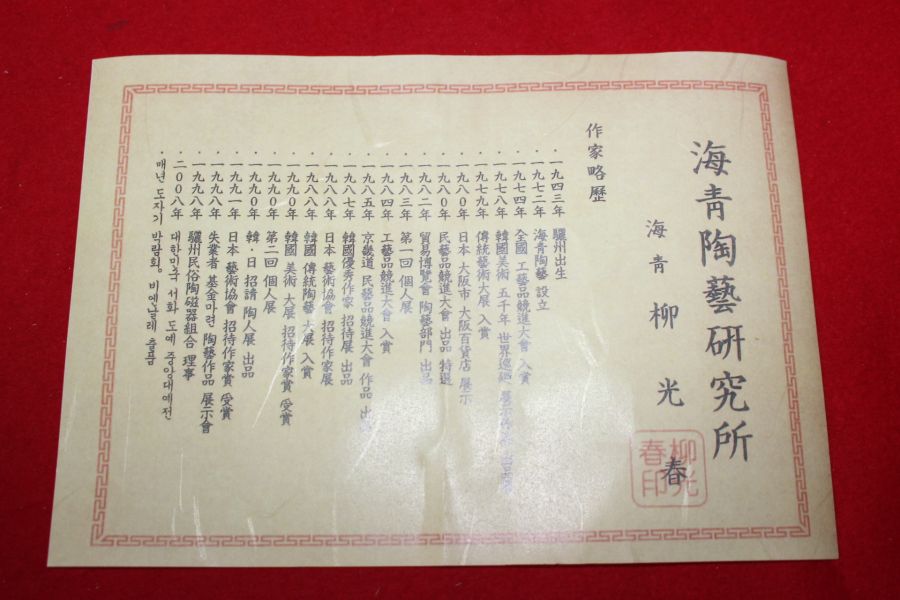 海靑陶藝硏究所
海靑 柳光春
柳光春印
作家略歷
・一九四三年 驪州出生
・一九七二年 海靑陶藝 設立
・一九七四年 全國 工藝品競進大會 入賞
・一九七九年 韓國美術 五千年 世界巡廻 展示
・一九七九年 傳統藝術大展 入賞
・一九八0年 日本 大阪市 大阪百貨店 展示
・一九八0年 民藝品競進大會 出品 特選
・一九八二年 貿易博覽會 陶藝部門 出品
・一九八三年 第一回 個人展
・一九八四年 工藝品競進大會 入賞
・一九八五年 京畿道 民藝品競進大會 作品 出
・一九八七年 韓國優秀作家 招待展 出品
・一九八八年 日本 藝術協會 招待作家展
・一九八八年 韓國 傳統陶藝 大展 入賞
・一九九0年 韓國 美術 大展 招待作家賞 受賞
・一九九0年 第二回 個人展
・一九九0年 韓・日 招請 陶人展 出品
・一九九一年 日本 藝術協會 招待作家賞 受賞
・一九九八年 失業者 基金마련 陶藝作品 展示會
・一九九八年 驪州民俗陶磁器組合 理事
・二00八年 대한민국 서화 도예 중앙대예전
・매년 도자기 박람회. 비엔날레 출품